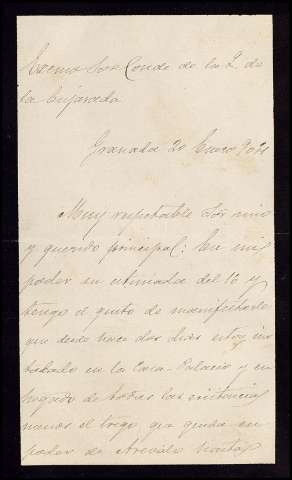 Excmo Sor Conde de la Q. de
la Enjarada
Granada 20 Enero 904
Muy respetable Sor mio
y querido principal: En mi
poder su estimada del 16 y
tengo el gusto de manifestarle
que desde hace dos dias estoy ins
talado en la Casa-Palacio y en
tregado de todas las existencias
menos el trigo que queda en
poder de Arevalo hasta